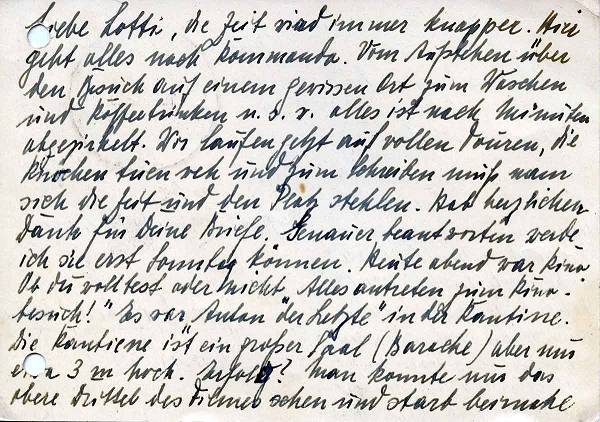 Liebe Lotti, die Zeit wird immer knapper. Hier
geht alles nach Kommando. Vom Aufstehen über
den Besuch auf einem gewissen Ort zum Waschen
und Kaffeetrinken u.s.w. alles ist nach Minuten
abgezirkelt. Wir laufen jetzt auf vollen Touren, die
Knochen tuen weh und zum Schreiben muß man
sich die Zeit und den Platz stehlen. Hab herzlichen
Dank für Deine Briefe. Genauer beantworten werde
ich sie erst Sonntag können. Heute abend war Kino
Ob du wolltest oder nicht. Alles antreten zum Kino-
besuch! "Es war Anton "der Letzte" in der Kantine.
Die Kantiene ist ein großer Saal (Baracke) aber nur
etwa 3 m hoch. Erfolg? Man konnte nur das
obere Drittel des Filmes sehen und statt beinahe